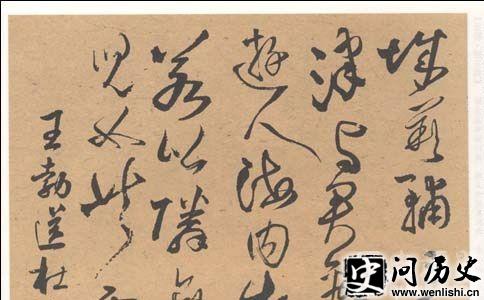 城闕輔
津与君離
遊人海内存
若比隣無
兒女共
王勃送杜
史 问历史
www.wenlishi.cn